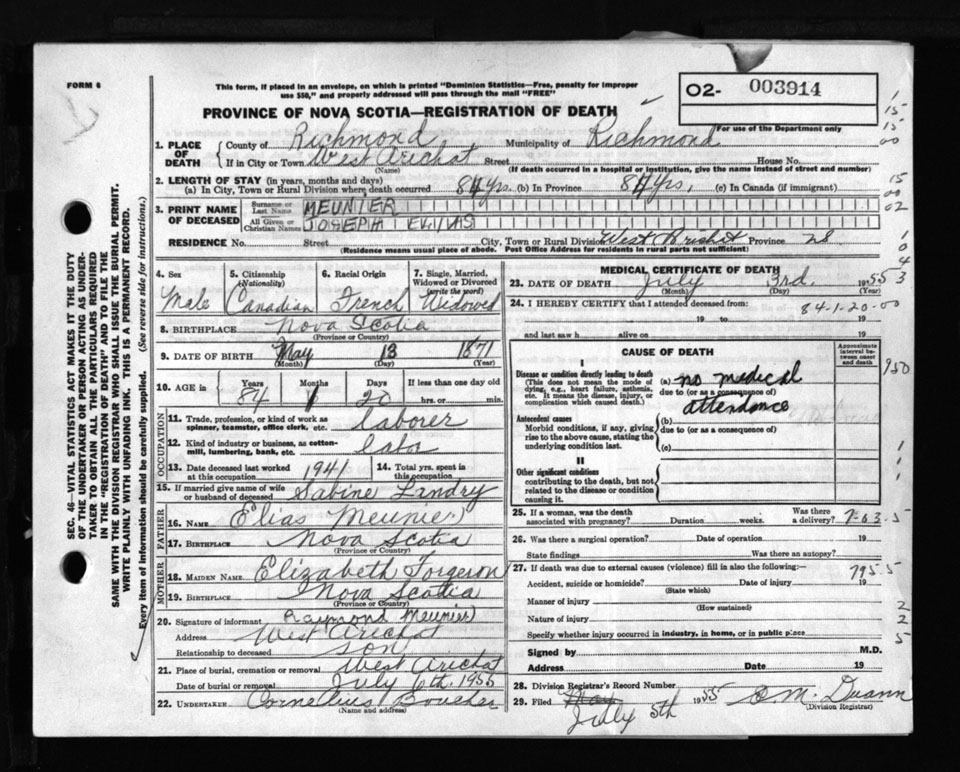 FORM 6
This form, if placed in an envelope, on which is printed "Dominion Statistics—Free, penalty for improper
use $50," and properly addressed will pass through the mail "FREE"
PROVINCE OF NOVA SCOTIA—REGISTRATION OF DEATH
O2- 003914
For use of the Department only
1. PLACE OF DEATH
County of Richmond Municipality of Richmond
If in City or Town West Arichat Street House No.
(Name) (If death occurred in a hospital or institution, give the name instead of street and number)
2. LENGTH OF STAY (in years, months and days)
(a) In City, Town or Rural Division where death occurred 84 yrs. (b) In Province 84 yrs, (c) In Canada (if immigrant)
3. PRINT NAME OF DECEASED
Surname or Last Name MEUNIER
All Given or Christian Names JOSEPH ELIAS
RESIDENCE No. Street City, Town or Rural Division West Arichat Province NS
(Residence means usual place of abode. Post Office Address for residents in rural parts not sufficient)
4. Sex Male
5. Citizenship (Nationality) Canadian
6. Racial Origin French
7. Single, Married, Widowed or Divorced (write the word) Widowed
8. BIRTHPLACE Nova Scotia
(Province or Country)
9. DATE OF BIRTH May 13 1871
(Month) (Day) (Year)
10. AGE in Years Months Days If less than one day old
84 1 20 hrs. or min.
OCCUPATION
11. Trade, profession, or kind of work as spinner, teamster, office clerk, etc. laborer
12. Kind of industry or business, as cotton-mill, lumbering, bank, etc.
13. Date deceased last worked at this occupation 1941
14. Total yrs. spent in this occupation
15. If married give name of wife or husband of deceased Sabine Landry
FATHER
16. NAME Elias Meunier
17. BIRTHPLACE Nova Scotia
(Province or Country)
MOTHER
18. MAIDEN NAME Elizabeth Forgeron
19. BIRTHPLACE Nova Scotia
(Province or Country)
20. Signature of informant Raymond Meunier
Address West Arichat
Relationship to deceased son
21. Place of burial, cremation or removal West Arichat
Date of burial or removal July 6th. 1955
22. UNDERTAKER Cornelius Boucher
(Name and address)
MEDICAL CERTIFICATE OF DEATH
23. DATE OF DEATH July 3rd. 1955
(Month) (Day) (Year)
24. I HEREBY CERTIFY that I attended deceased from:
84-1-20-00
19 to 19
and last saw h alive on 19
CAUSE OF DEATH
Approximate interval between onset and death
I
Disease or condition directly leading to death
(This does not mean the mode of dying, e.g., heart failure, asthenia, etc. It means the disease, injury, or complication which caused death.)
(a) no medical
due to (or as a consequence of)
attendance
Antecedent causes
Morbid conditions, if any, giving rise to the above cause, stating the underlying condition last.
(b)
due to (or as a consequence of)
(c)
II
Other significant conditions
contributing to the death, but not related to the disease or condition causing it.
25. If a woman, was the death associated with pregnancy? Duration weeks. Was there a delivery?
26. Was there a surgical operation? Date of operation 19
State findings Was there an autopsy?
27. If death was due to external causes (violence) fill in also the following:—
7955
Accident, suicide or homicide? Date of injury 19
(State which)
Manner of injury
(How sustained)
Nature of injury
Specify whether injury occurred in industry, in home, or in public place
Signed by M.D.
Address Date 19
28. Division Registrar's Record Number
29. Filed May July 5th 1955
(Division Registrar)
SEC. 46—VITAL STATISTICS ACT MAKES IT THE DUTY
OF THE UNDERTAKER OR PERSON ACTING AS UNDER-
TAKER TO OBTAIN ALL THE PARTICULARS REQUIRED
IN THE "REGISTRATION OF DEATH" AND TO FILE THE
SAME WITH THE DIVISION REGISTRAR WHO SHALL ISSUE THE BURIAL PERMIT.
WRITE PLAINLY WITH UNFADING INK. THIS IS A PERMANENT RECORD.
Every item of information should be carefully supplied. (See reverse side for instructions.)